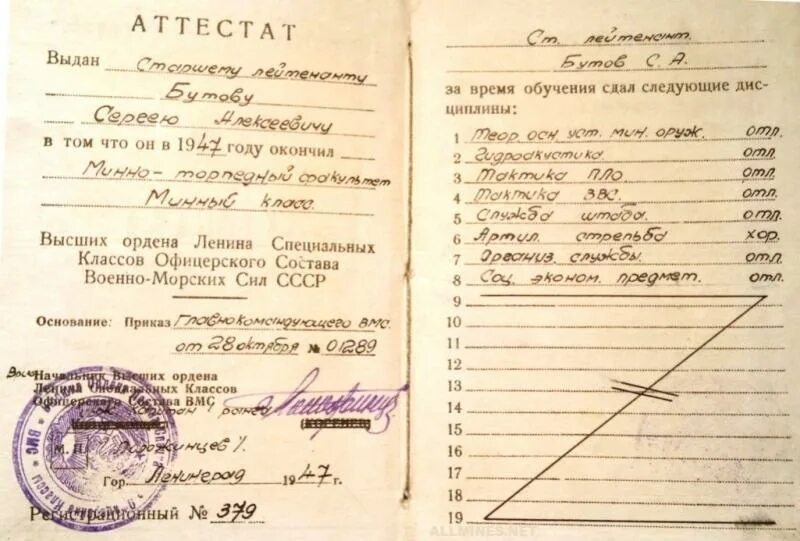 АТТЕСТАТ
Выдан Старшему лейтенанту
Бутову
Сергею Алексеевичу
в том что он в 1947 году окончил
Минно-торпедный факультет
Минный класс.
Высших ордена Ленина Специальных
Классов Офицерского Состава
Военно-Морских Сил СССР
Основание: Приказ Главнокомандующего ВМС.
от 28 октября № 01289
Начальник Высших ордена
Ленина Специальных Классов
Офицерского Состава ВМС
Капитан 1 ранга
М. П.
Гор. Ленинград 1947 г.
Регистрационный № 379
Ст. лейтенант.
Бутов С. А.
за время обучения сдал следующие дис-
циплины:
1 Теор. осн. уст. мин. оруж. отл.
2 Гидроакустика. отл.
3 Тактика ПЛО. отл.
4 Тактика ЗВС. отл.
5 Служба штаба. отл.
6 Артил. стрельба хор.
7 Организ. службы. отл.
8 Соц. эконом. предмет. отл.
9
10
11
12
13
14
15
16
17
18
19
ALLMINES.NET